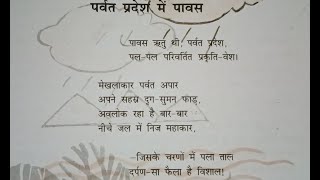 पर्वत प्रदेश में पावस
पावस ऋतु थी, पर्वत प्रदेश,
पल-पल परिवर्तित प्रकृति-वेश।
मेखलाकार पर्वत अपार
अपने सहस्र दृग-सुमन फाड़,
अवलोक रहा है बार-बार
नीचे जल में निज महाकार,
-जिसके चरणों में पला ताल
दर्पण-सा फैला है विशाल!